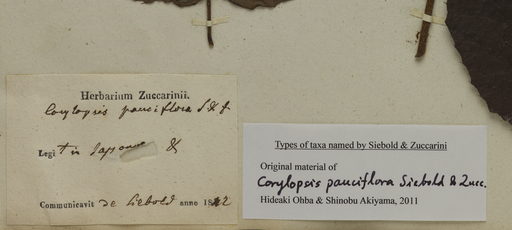 Herbarium Zuccarinii.
Corylopsis pauciflora S & Z
Legit in Japonia &
Communicavit de Siebold anno 1842
Types of taxa named by Siebold & Zuccarini
Original material of
Corylopsis pauciflora Siebold & Zucc.
Hideaki Ohba & Shinobu Akiyama, 2011